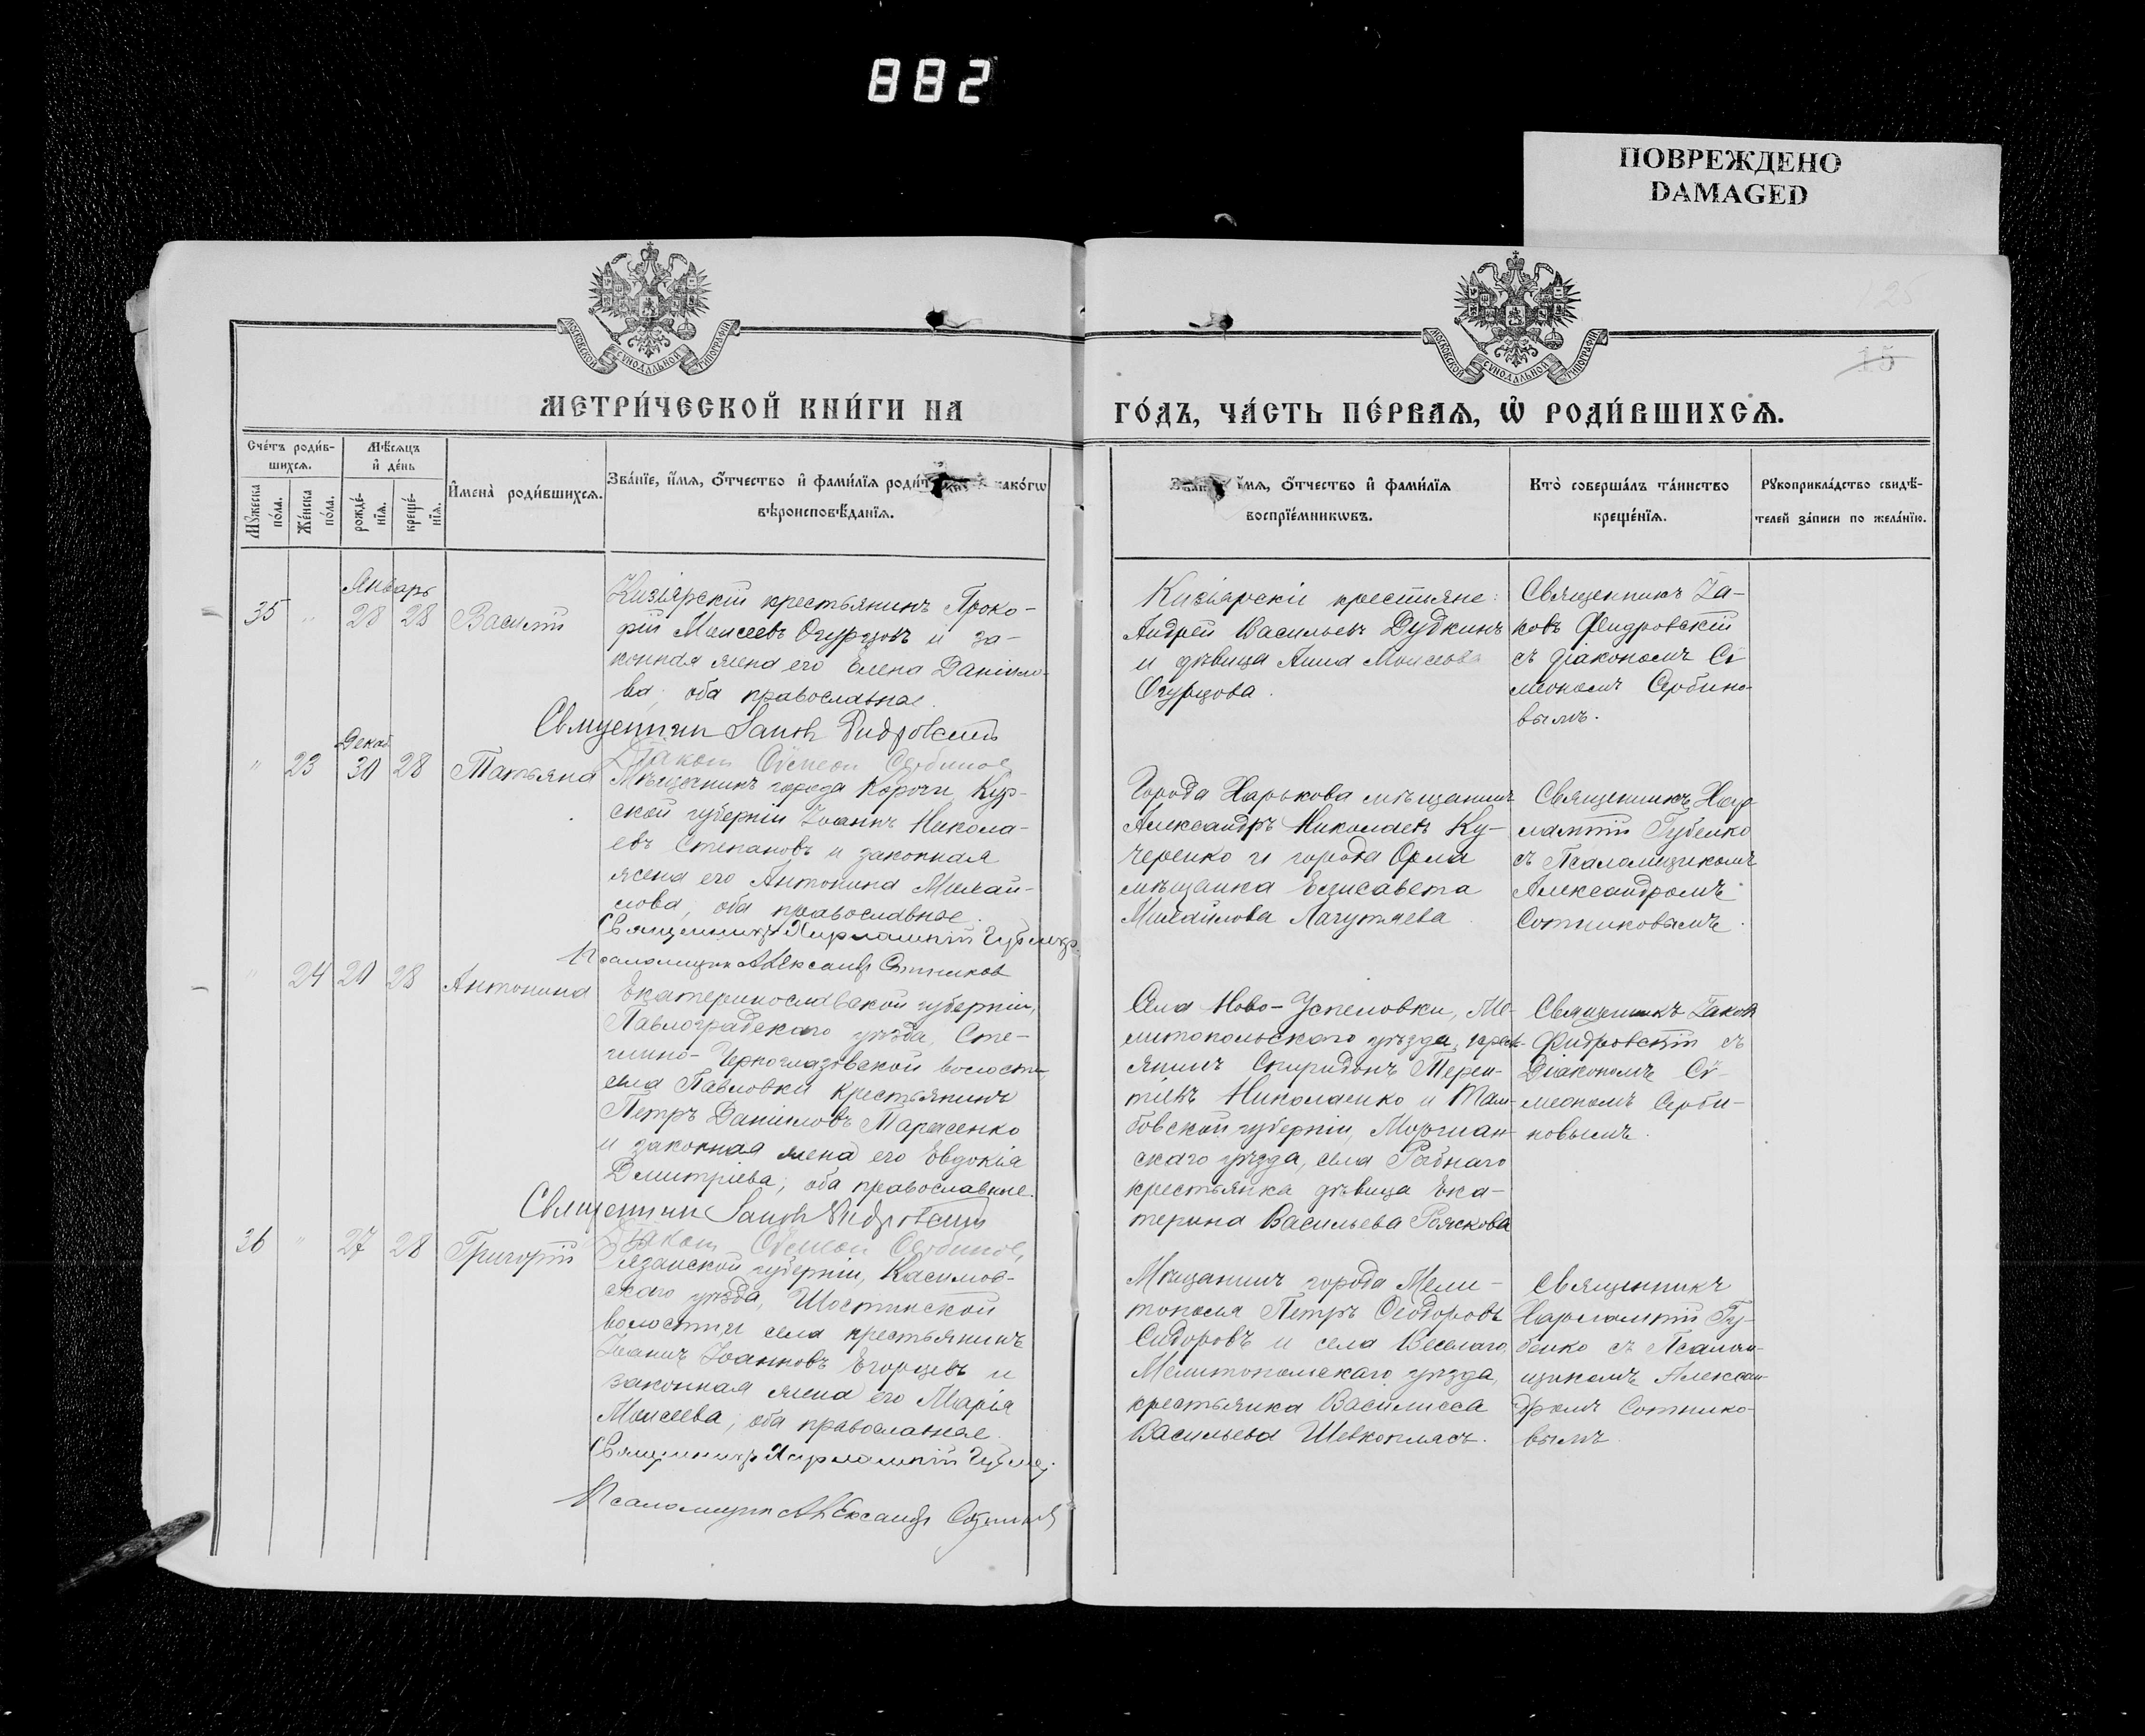 882
ПОВРЕЖДЕНО
DAMAGED
МОСКОВСКОЙ СУНОДАЛЬНОЙ ТИПОГРАФІИ
МОСКОВСКОЙ СУНОДАЛЬНОЙ ТИПОГРАФІИ
15
МЕТРИ́ЧЕСКОЙ КНИ́ГИ НА
ГО́ДЪ, ЧА́СТЬ ПЕ́РВАѦ, Ѡ҆ РОДИ́ВШИХСѦ.
Сче́тъ роди́в-
шихсѧ.
Мѣ́сѧцъ
и҆ де́нь
Мꙋ́жеска
по́ла.
Же́нска
по́ла.
рожде́-
нїѧ.
креще́-
нїѧ.
И҆мена̀ роди́вшихсѧ.
Зва́нїе, и҆́мѧ, ѻ҆́тчество и҆ фами́лїѧ
како́гѡ
вѣроисповѣ́данїѧ.
и҆́мѧ, ѻ҆́тчество и҆ фами́лїѧ
воспрїе́мникѡвъ.
Кто̀ соверша́лъ та́инство
креще́нїѧ.
Рꙋкоприкла́дство свидѣ́-
телей за́писи по жела́нїю.
Январь
35 " 28 28 Василій
Кизіярскій крестьянинъ Проко-
фій Моисеевъ Огурцовъ и за-
конная жена его Елена Даніило-
ва; оба православные.
Священникъ Іаковъ
Діаконъ Сѵмеонъ Сербиновъ
Кизіярскіе крестьяне:
Андрей Васильевъ Дудкинъ
и дѣвица Анна Моисеева
Огурцова.
Священникъ Іа-
ковъ
съ діакономъ Сѵ
меономъ Сербино-
вымъ.
Декаб
" 23 30 28 Татьяна
Мѣщанинъ города Корочи, Кур-
ской губерніи Іоаннъ Никола-
евъ Степановъ и законная
жена его Антонина Михай-
лова, оба православные.
Священникъ Харлампій Губенко
Псаломщикъ Александръ Сотников
Города Харькова мѣщанинъ
Александръ Николаевъ Ку-
черенко и города Орла
мѣщанка Елисавета
Михайлова Лагутяева
Священникъ Хар
лампій Губенко
съ Псаломщикомъ
Александромъ
Сотниковымъ.
" 24 20 28 Антонина
Екатеринославской губерніи,
Павлоградскаго уѣзда,
волости
села Павловки крестьянинъ
Петръ Даніиловъ Тарасенко
и законная жена его Евдокія
Димитріева; оба православные.
Священникъ Іаковъ
Села Ново-Успеновки, Ме-
литопольскаго уѣзда, крест-
янинъ Спиридонъ Терен-
тіевъ Николаенко и Там-
бовской губерніи, Моршан-
скаго уѣзда, села
крестьянка дѣвица Ека-
терина Васильева Ряскова
Священникъ Іаковъ
съ
Діакономъ Сѵ-
меономъ Серби-
новымъ.
36 " 27 28 Григорій
Діаконъ Сѵмеонъ Сербиновъ
Рязанской губерніи, Касимов-
скаго уѣзда, Шостинской
волости и села крестьянинъ
Іоаннъ Іоанновъ Егорцевъ и
законная жена его Марія
Моисеева; оба православные.
Священникъ Харлампій Губенко
Псаломщикъ Александръ Сотников
Мѣщанинъ города Мели-
тополя Петръ Ѳеодоровъ
Сидоровъ и села Веселаго,
Мелитопольскаго уѣзда,
крестьянка Василисса
Васильева Шевкоплясъ.
Священникъ
Харлампій Гу-
бенко съ Псалом-
щикомъ Алексан-
дромъ Сотнико-
вымъ